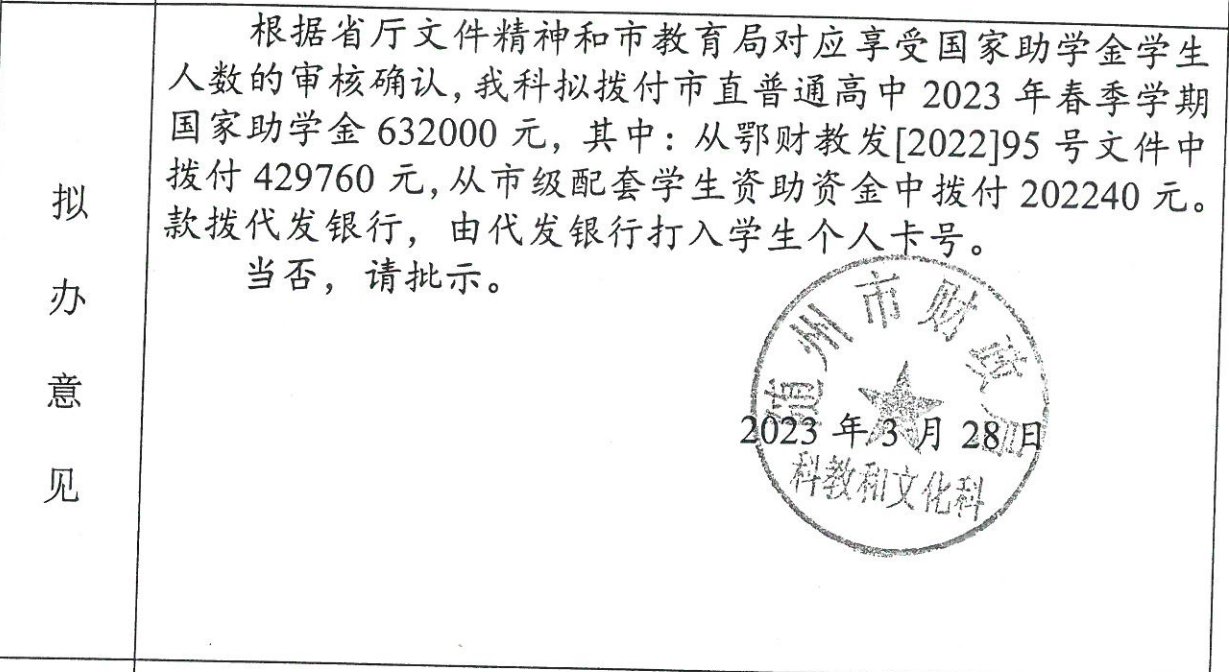 根据省厅文件精神和市教育局对应享受国家助学金学生
人数的审核确认,我科拟拨付市直普通高中 2023 年春季学期
国家助学金 632000 元，其中：从鄂财教发[2022]95 号文件中
拨付 429760 元,从市级配套学生资助资金中拨付 202240 元。
款拨代发银行，由代发银行打入学生个人卡号。
当否，请批示。
拟
办
意
见
随州市财政局
2023 年 3 月 28 日
科教和文化科